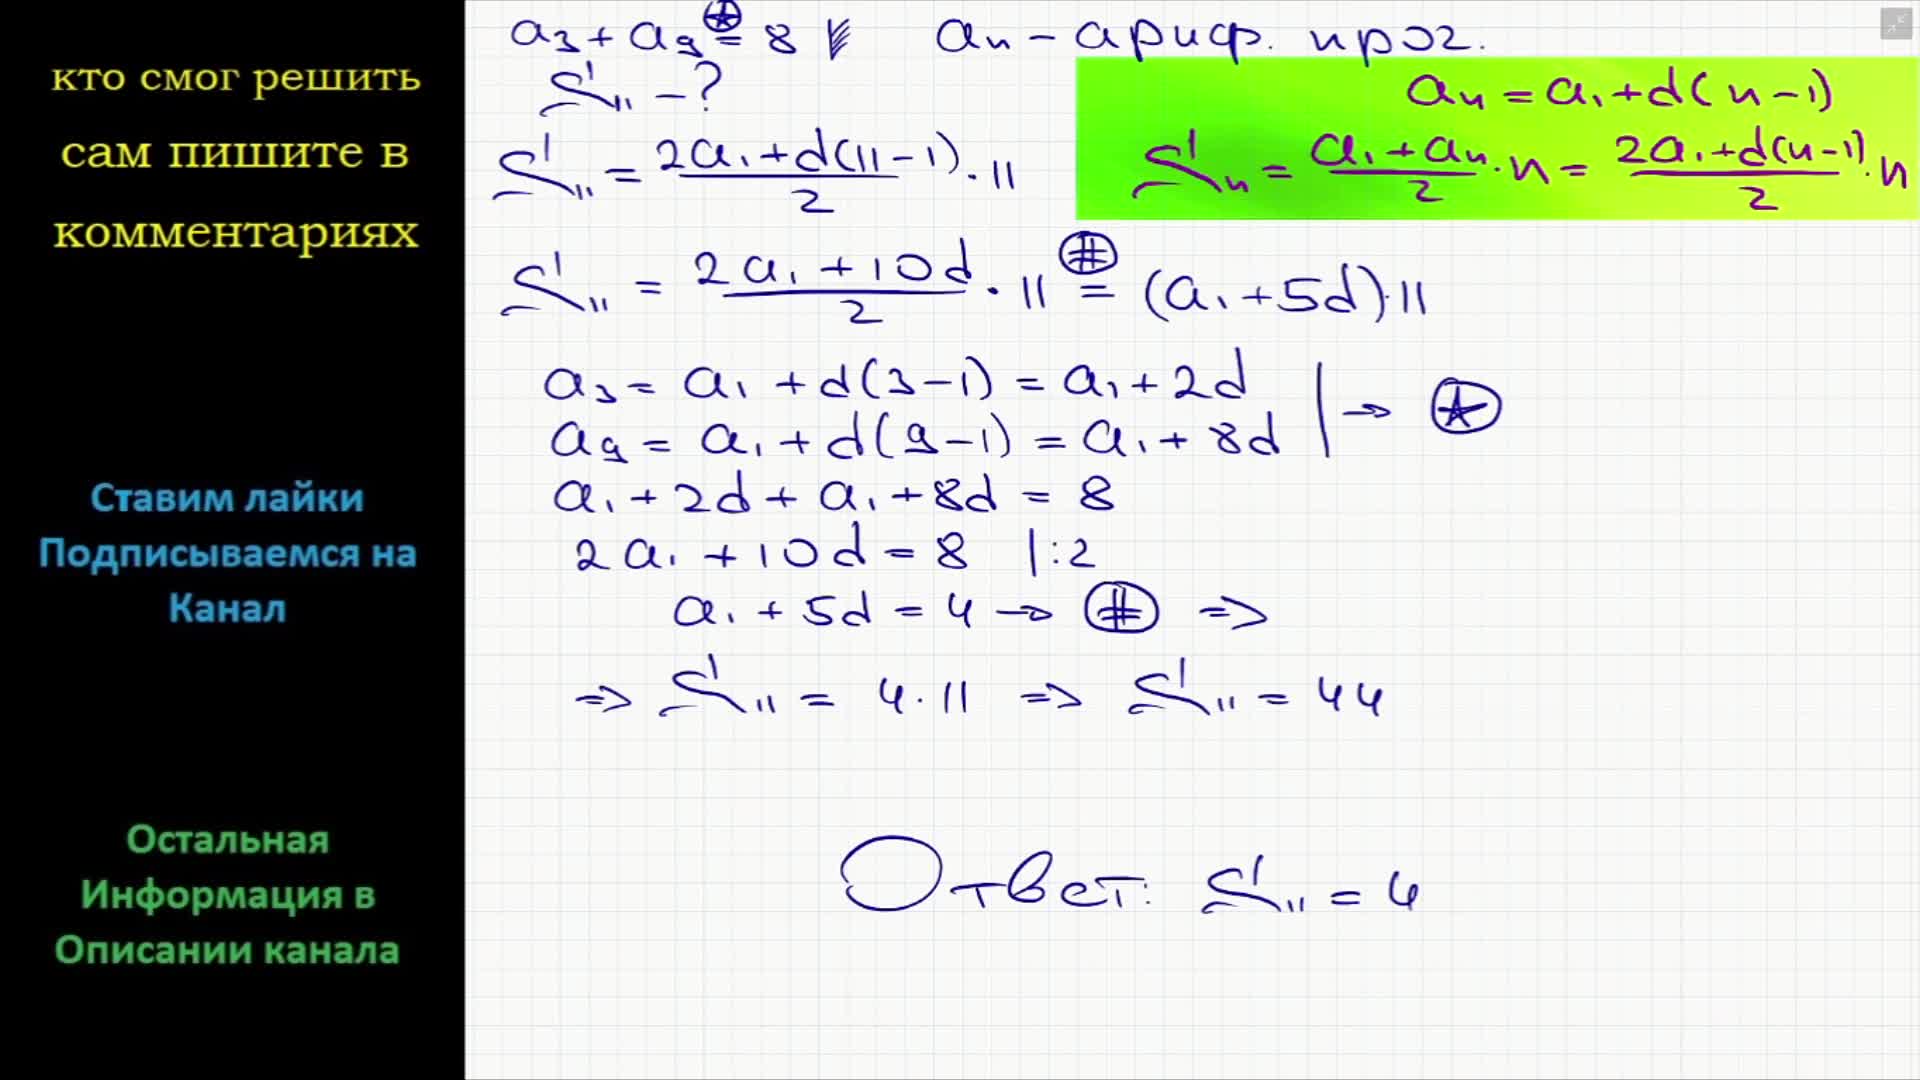 кто смог решить
сам пишите в
комментариях
Ставим лайки
Подписываемся на
Канал
Остальная
Информация в
Описании канала
a₃ + a₉ = 8 aₙ - ариф. прог.
S₁₁ - ?
aₙ = a₁ + d(n-1)
Sₙ = (a₁ + aₙ)/2 · n = (2a₁ + d(n-1))/2 · n
S₁₁ = (2a₁ + d(11-1))/2 · 11
S₁₁ = (2a₁ + 10d)/2 · 11 (#)= (a₁ + 5d)·11
a₃ = a₁ + d(3-1) = a₁ + 2d
a₉ = a₁ + d(9-1) = a₁ + 8d | → ★
a₁ + 2d + a₁ + 8d = 8
2a₁ + 10d = 8 |:2
a₁ + 5d = 4 → # ⇒
⇒ S₁₁ = 4·11 ⇒ S₁₁ = 44
Ответ: S₁₁ = 4